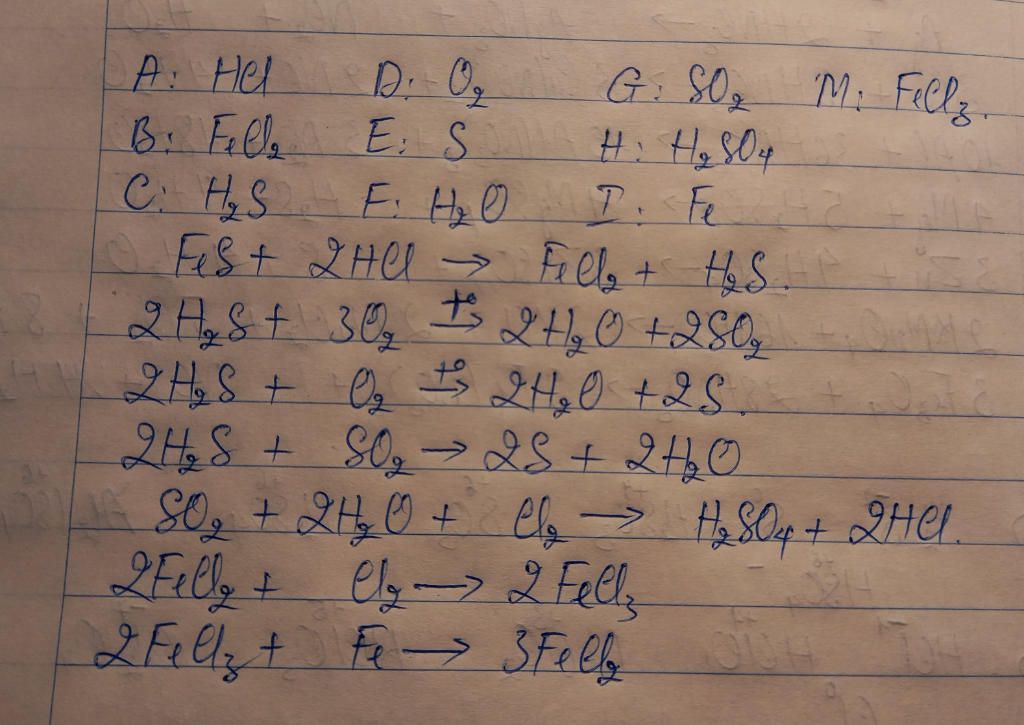 A: HCl D: O₂ G: SO₂ M: FeCl₃.
B: FeCl₂ E: S H: H₂SO₄
C: H₂S F: H₂O I: Fe
FeS + 2HCl → FeCl₂ + H₂S.
2H₂S + 3O₂ →(t°) 2H₂O + 2SO₂
2H₂S + O₂ →(t°) 2H₂O + 2S.
2H₂S + SO₂ → 2S + 2H₂O
SO₂ + 2H₂O + Cl₂ → H₂SO₄ + 2HCl.
2FeCl₂ + Cl₂ → 2FeCl₃
2FeCl₃ + Fe → 3FeCl₂